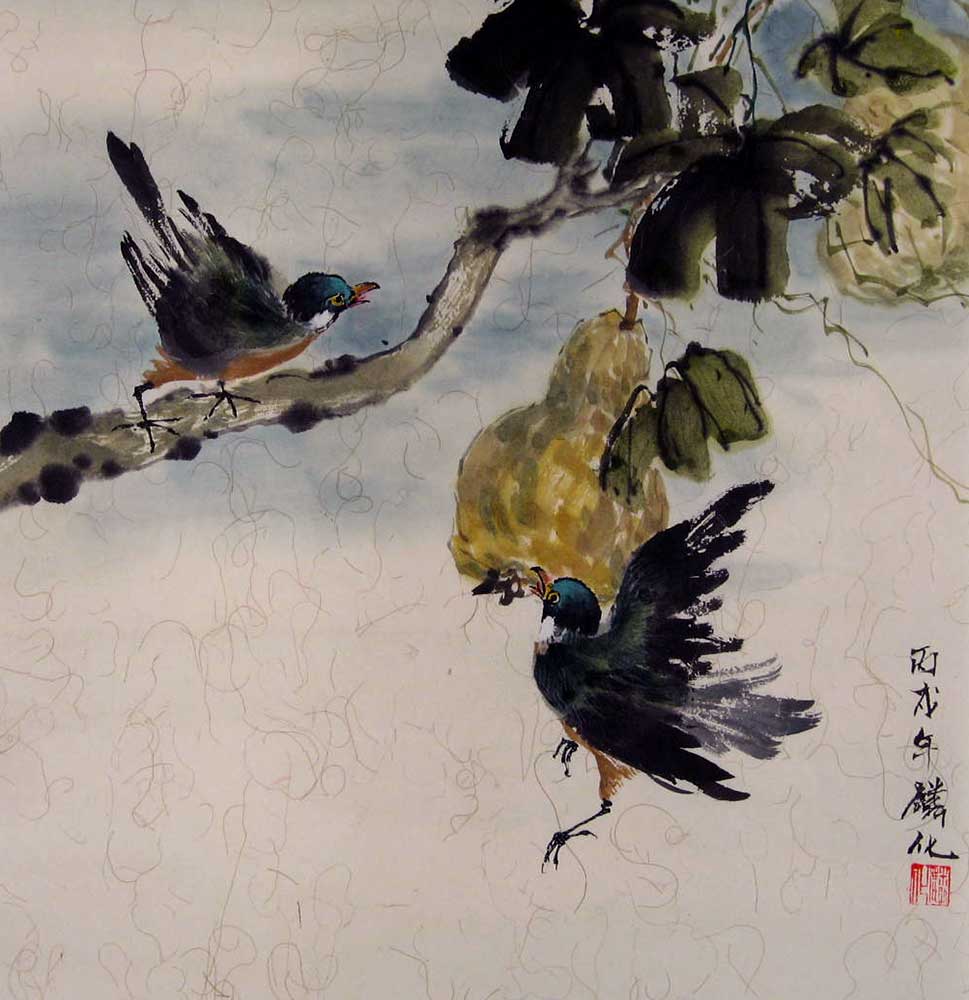 丙戌年麟化